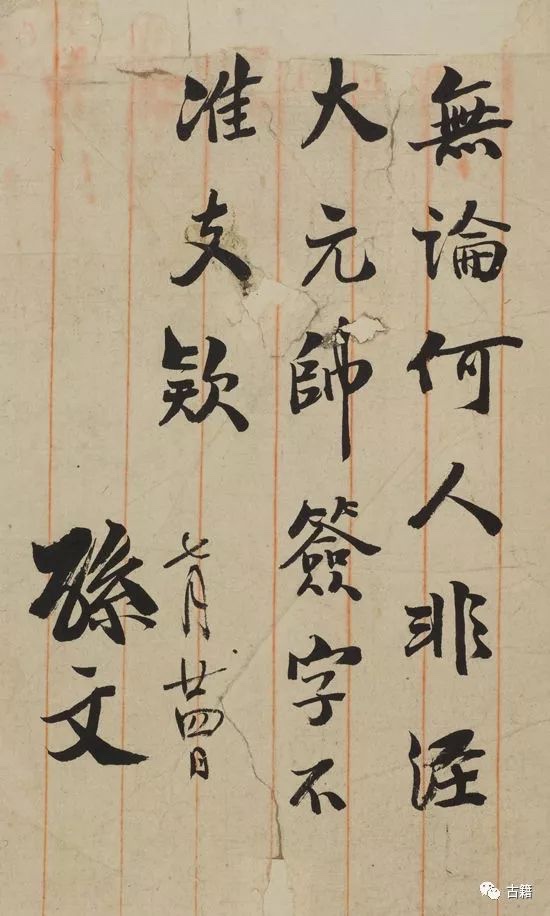 無論何人非涇
大元帥簽字不
准支欵
七月廿四日
孫文
古籍